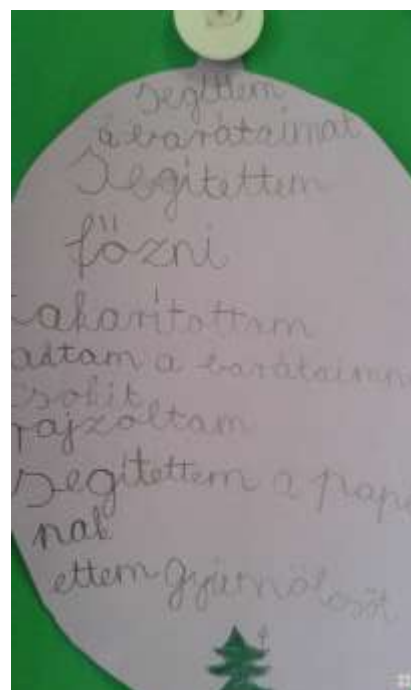 segittem
a barátaimat
Segitettem
főzni
takarítottam
adtam a barátaimn
csokit
rajzoltam
segítettem a pap
nak
ettem gyümölcsöt